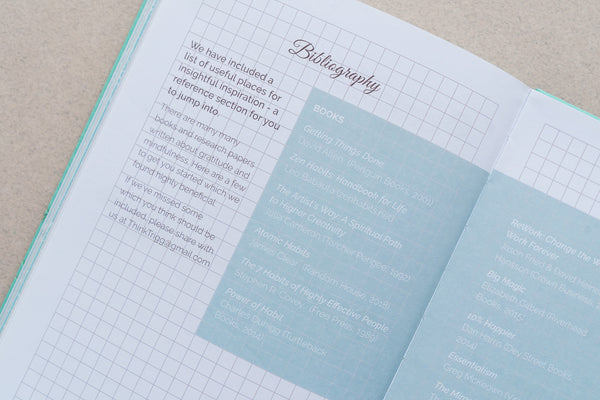 Bibliography
We have included a
list of useful places for
insightful inspiration - a
reference section for you
to jump into.
There are many many
books and research papers
written about gratitude and
mindfulness. Here are a few
to get you started which we
found highly beneficial.
If we've missed some
which you think should be
included, please share with
us at ThinkTrigg@gmail.com
BOOKS
Getting Things Done
David Allen (Penguin Books, 2001)
Zen Habits: Handbook for Life
Leo Babauta
The Artist's Way: A Spiritual Path
to Higher Creativity
Julia Cameron 1992)
Atomic Habits
James Clear (Random House, 2018)
The 7 Habits of Highly Effective People
Stephen R. Covey (Free Press, 1989)
Power of Habit
Charles Duhigg (Turtleback
Books, 2014)
ReWork: Change the
Work Forever
Jason Fried & David
Hansson (Crown Business,
Big Magic
Elizabeth Gilbert (Riverhead
Books, 2015)
10% Happier
Dan Harris (Dey Street Books,
2014)
Essentialism
Greg McKeown
The